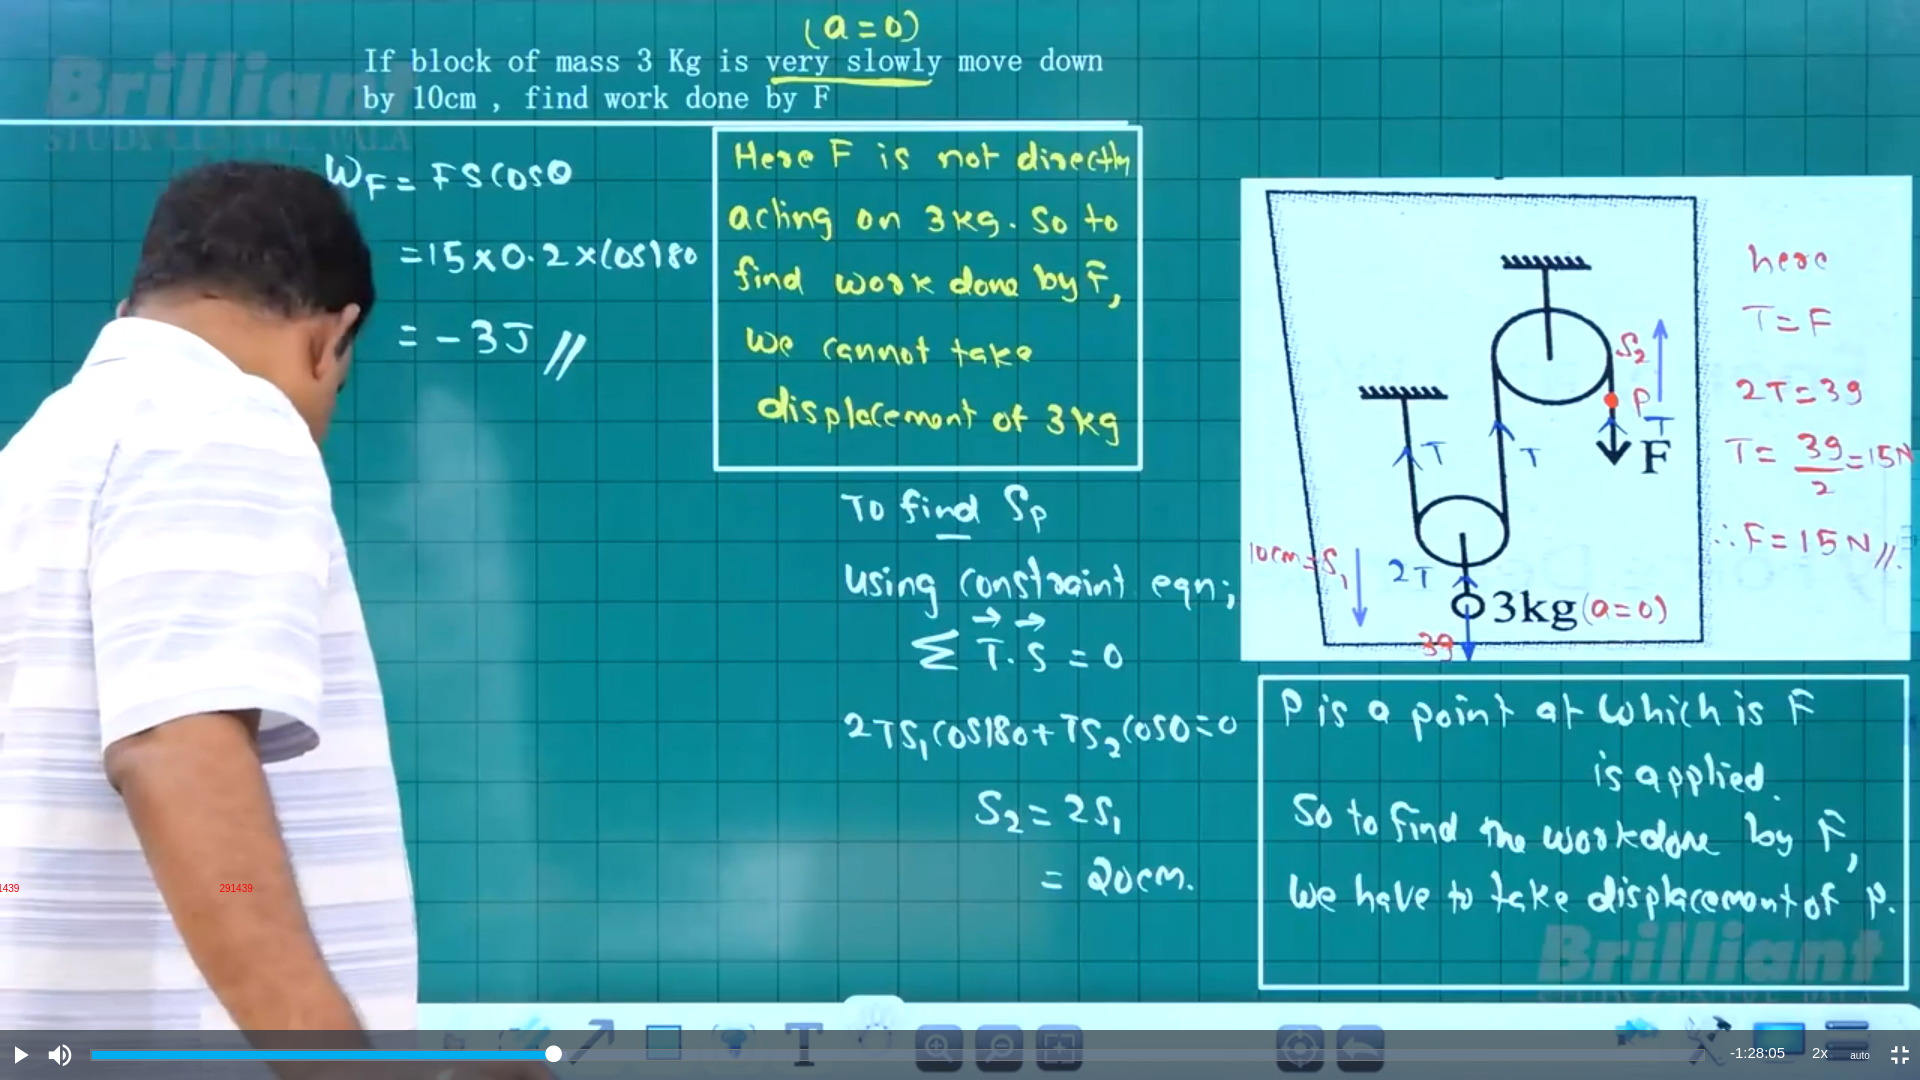 (a=0)
If block of mass 3 Kg is very slowly move down
by 10cm , find work done by F
Brilliant
STUDY CENTRE, PALA
W_F = FScosθ
=15×0.2×Cos180
= -3J //
Here F is not directly
acting on 3kg. So to
find work done by F,
we cannot take
displacement of 3kg
To find S_P
using constraint eqn;
Σ T⃗.S⃗ = 0
2TS₁Cos180+TS₂Cos0=0
S₂= 2S₁
= 20cm.
S₂
P
T
F
T
T
10cm=S₁
2T
3kg(a=0)
3g
here
T=F
2T=3g
T= 3g/2 =15N
∴F=15N//.
P is a point at which is F
is applied.
So to find the workdone by F,
We have to take displacement of P.
Brilliant
1439
291439
T
-1:28:05
2x
auto